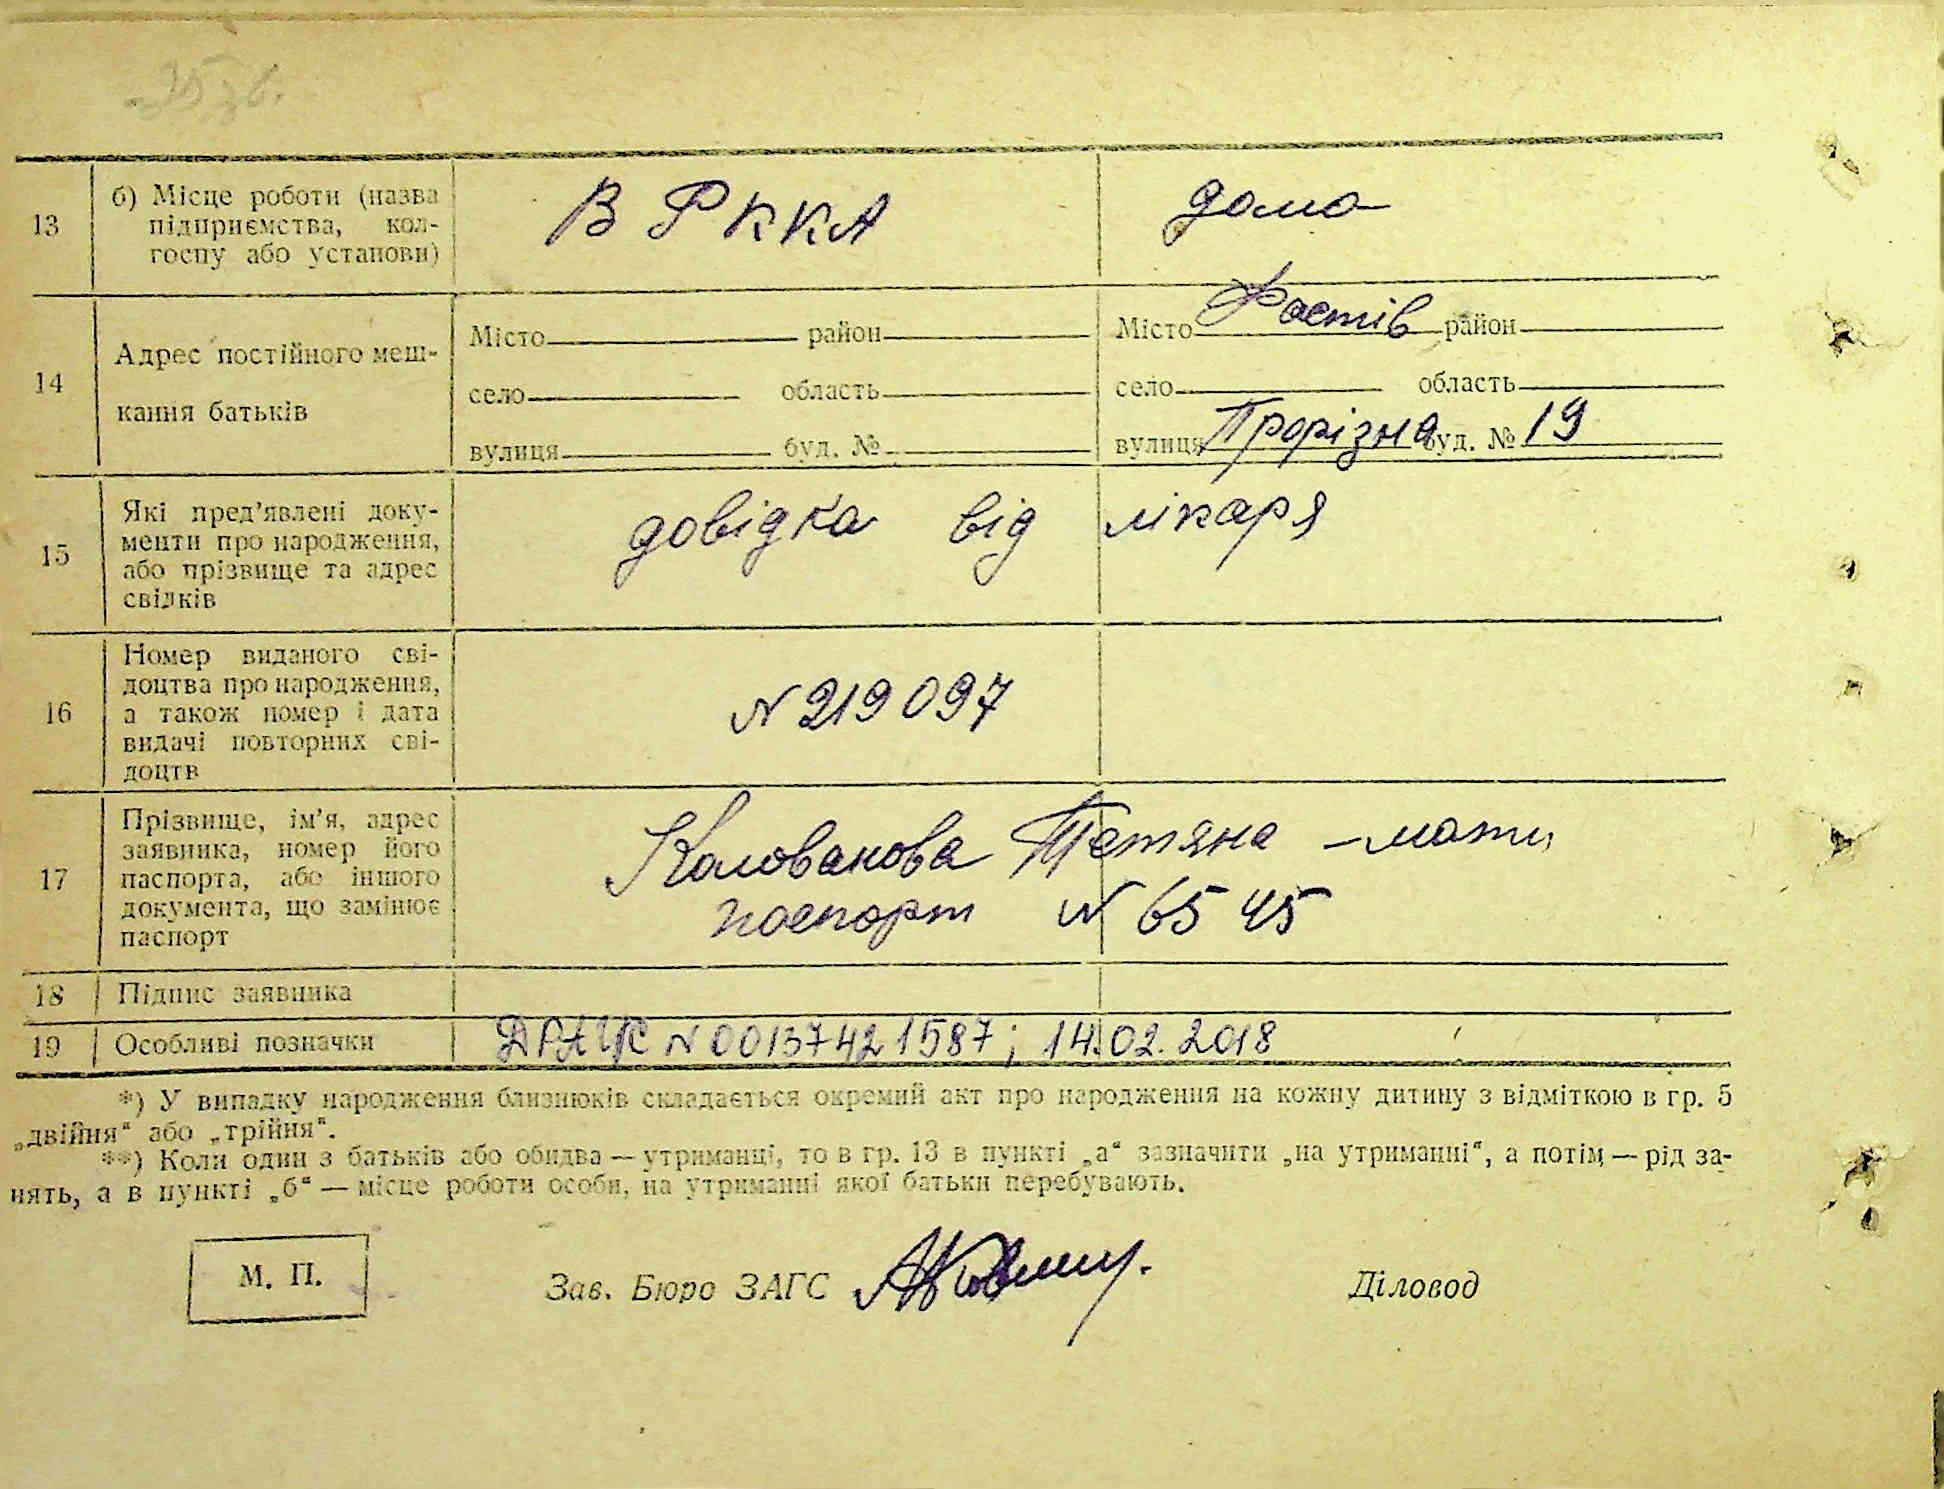 13
б) Місце роботи (назва
підприємства, кол-
госпу або установи)
В РККА
дома
14
Адрес постійного меш-
кання батьків
Місто район
село область
вулиця буд. №
Місто Фастів район
село область
вулиця Прорізна буд. № 19
15
Які пред'явлені доку-
менти про народження,
або прізвище та адрес
свідків
довідка від лікаря
16
Номер виданого сві-
доцтва про народження,
а також номер і дата
видачі повторних сві-
доцтв
N 219097
17
Прізвище, ім'я, адрес
заявника, номер його
паспорта, або іншого
документа, що замінює
паспорт
Колованова Тетяна – мати
паспорт N 6545
18
Підпис заявника
19
Особливі позначки
ДРАЦС N 00137421587; 14.02.2018
*) У випадку народження близнюків складається окремий акт про народження на кожну дитину з відміткою в гр. 5
„двійня“ або „трійня“.
**) Коли один з батьків або обидва — утриманці, то в гр. 13 в пункті „а“ зазначити „на утриманні“, а потім — рід за-
нять, а в пункті „б“ — місце роботи особи, на утриманні якої батьки перебувають.
М. П.
Зав. Бюро ЗАГС
Діловод